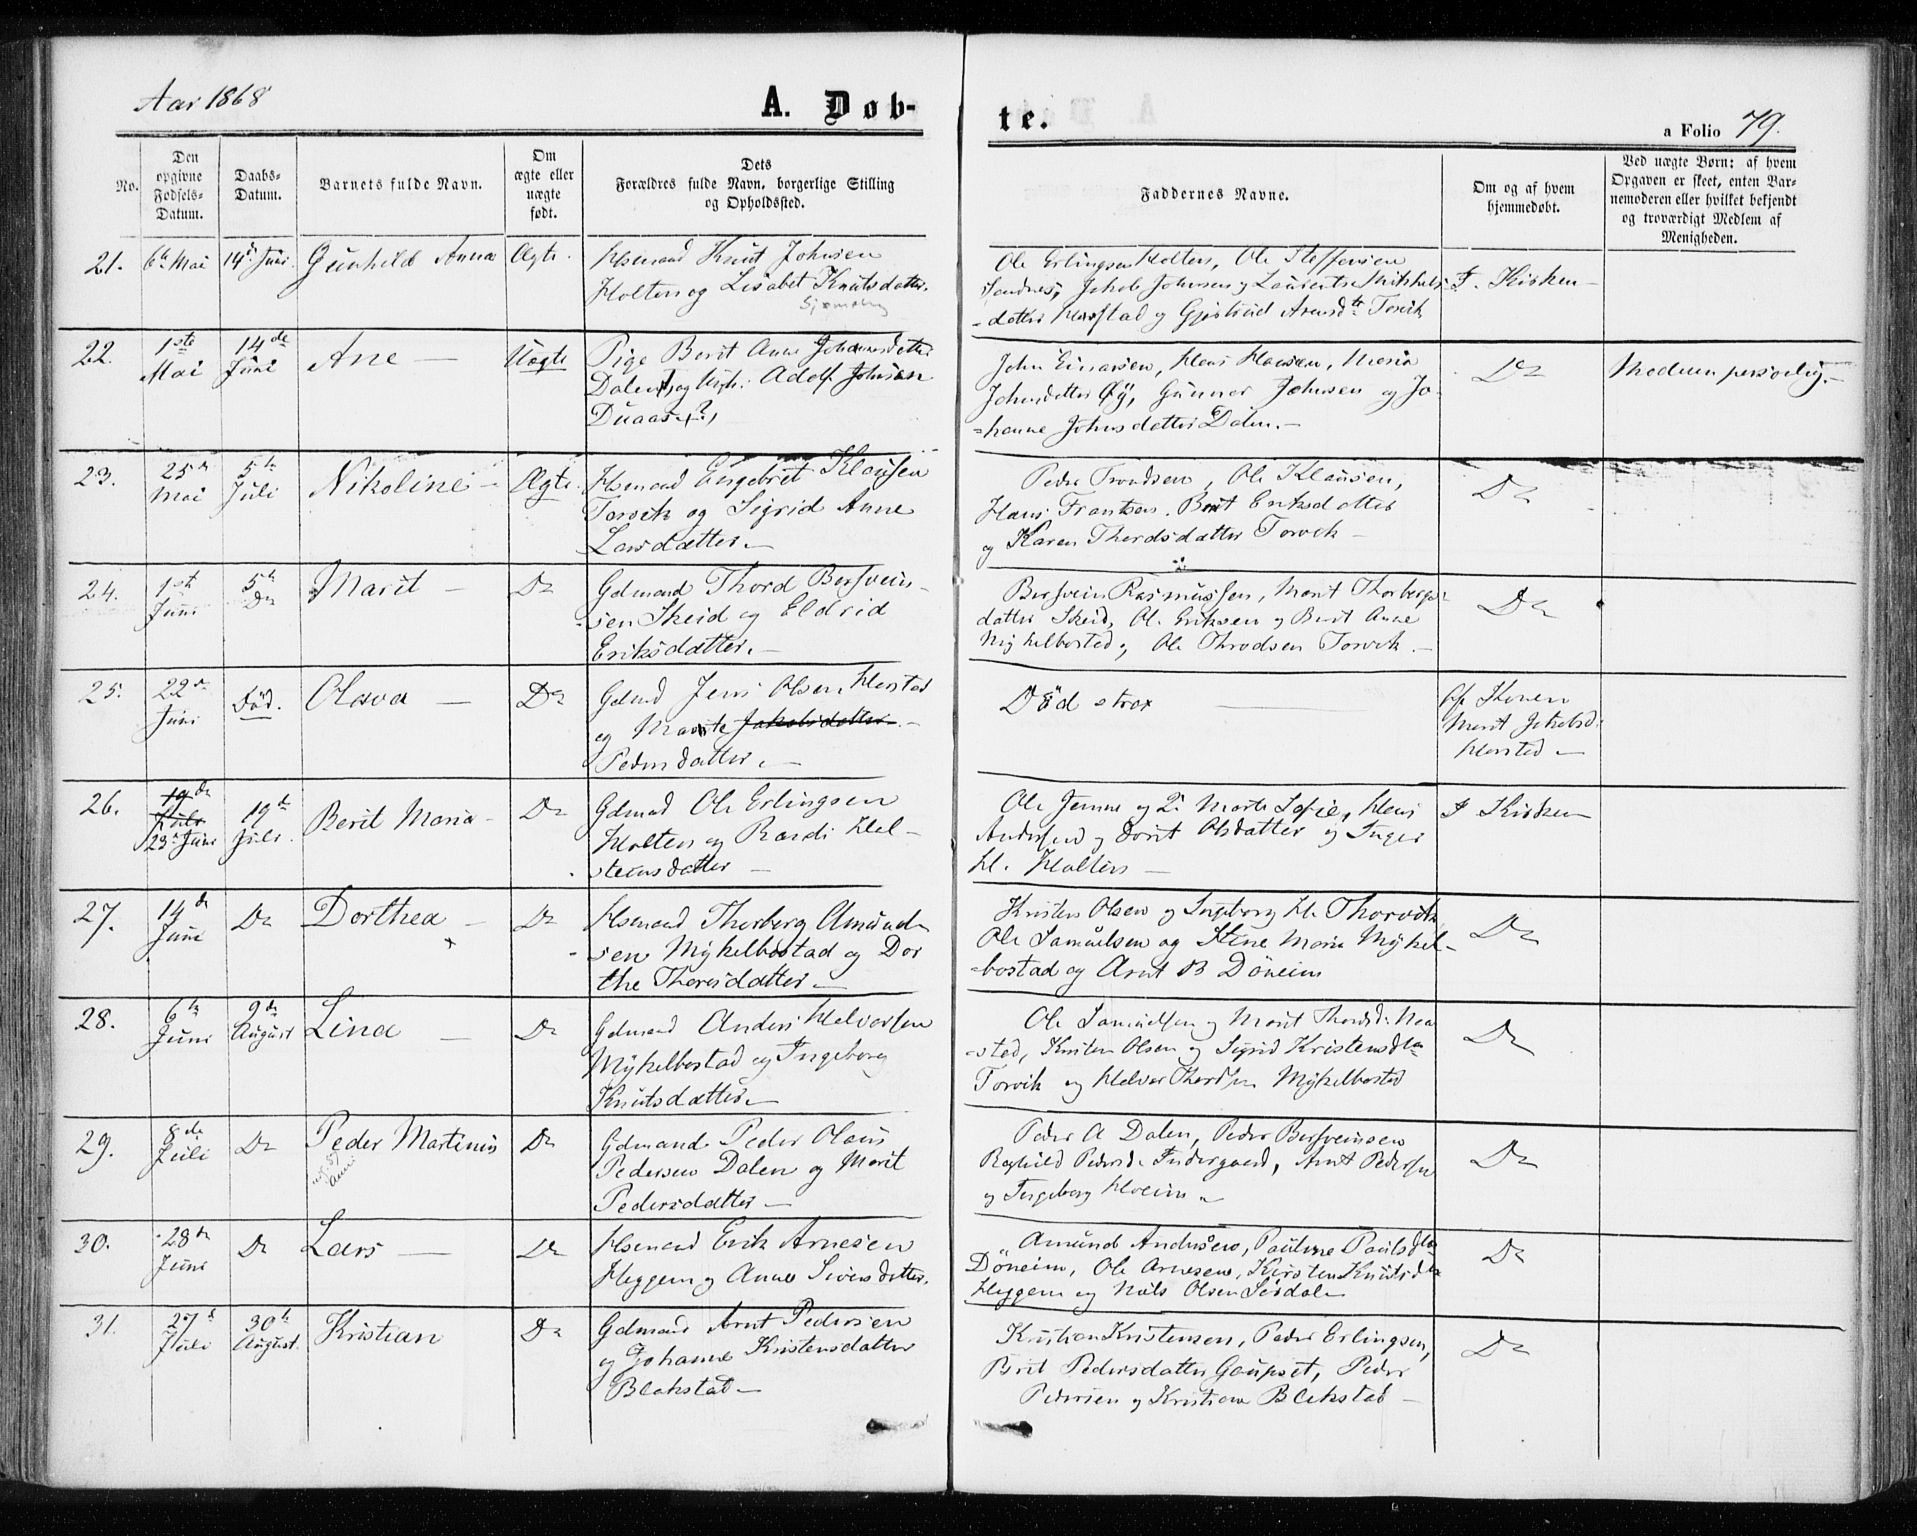 Aar 1868
A. Døb-
te.
a Folio 79.
No.
Den opgivne Fødsels-Datum.
Daabs-Datum.
Barnets fulde Navn.
Om ægte eller uægte født.
Dets Forældres fulde Navn, borgerlige Stilling og Opholdssted.
Faddernes Navne.
Om og af hvem hjemmedøbt.
Ved uægte Børn: af hvem Opgaven er skeet, enten Barnemoderen eller hvilket bekjendt og troværdigt Medlem af Menigheden.
21. 6te Mai 14de Juni Gunhild Anna Ægte.
Husmand Knut Johnsen
Holten og Lisabet Knutsdatter.
Ole Erlingsen Holten, Ole Steffensen
Sandnes, Jakob Johnsen og Laurentse Mikkels-
-datter Harstad og Gjertrud Arnsdtr Torvik
I Kirken
22. 1ste Mai 14de Juni Ane — Uægte
Pige Berit Anne Johannesdatter
Dalen, og Ungk. Adolf Johnsen
Duaas(?)
John Einarsen, Hans Hansen, Maria
Johnsdatter Øÿ, Gunnar Johnsen og Jo-
-hanne Johnsdatter Dalen.—
Do
Moderen personlig.—
23. 25de Mai 5te Juli Nikoline — Ægte.
Husmand Engebret Klausen
Torvik og Sigrid Anne
Larsdatter.—
Peder Trondsen, Ole Klausen,
Hans Frantsen. Berit Eriksdatter
og Karen Thordsdatter Torvik —
Do
24. 1ste Juni 5te Do Marit — Do
Gdmand Thord Bersvein-
-sen Skeid og Eldrid
Eriksdatter.—
Bersvein Rasmussen, Marit Thorbergs-
datter Skeid, Ole Eriksen og Berit Anne
Mykelbostad, Ole Throdsen Torvik.—
Do
25. 22de Juni Død. Olava — Do
Gdmd Jens Olsen Harstad
og Marte Jakobsdatter —
Pedersdatter.—
Død strax
af Konen
Marit Jakobsd.
Harstad —
26. 19de Juli 23de Juni 19de Juli. Berit Maria — Do
Gdmand Ole Erlingsen
Holten og Randi Hal-
-steensdatter —
Ole Jenne og Marte Sofie, Hans
Andersen og Dorit Olsdatter og Inger
H. Holten —
I Kirken
27. 14de Juni Do Dorthea — Do
Husmand Thorberg Amund-
-sen Mykelbostad og Dor
the Thoresdatter —
Kristen Olsen og Ingeborg H. Thorvik
Ole Samuelsen og Stine Maria Mykel-
-bostad og Arnt B Døneim
Do
28. 6te Juni 9de August Lina — Do
Gdmand Anders Halvorsen
Mykelbostad og Ingeborg
Knutsdatter —
Ole Samuelsen og Marit Thordsd.
-stad, Kristen Olsen og Sigrid Kristensdtr
Torvik og Halvor Thordsen Mykelbostad
Do
29. 8de Juli Do Peder Martinus Do
Gdmand Peder Olaus
Pedersen Dalen og Marit
Pedersdatter —
Peder A Dalen, Peder Bersveinsen
Raghild Pedersd. Indergaard, Arnt Pedersen
og Ingeborg Hoeim —
Do
30. 28de Juni Do Lars — Do
Husmand Erik Arnesen
Heggem og Anne Siversdatter.
Amund Andersen, Pauline Paulsdtr
Døneim, Ole Arnesen, Kirsten Knutsdtr
Heggem og Nils Olsen Sørdal
Do
31. 27de Juli 30te August. Kristian Do
Gdmand Arnt Pedersen
og Johanne Kristensdatter
Blakstad —
Kristian Kristensen, Peder Erlingsen,
Brit Pedersdatter Gaupset, Peder
Pedersen og Kristiane Blekstad —
Do